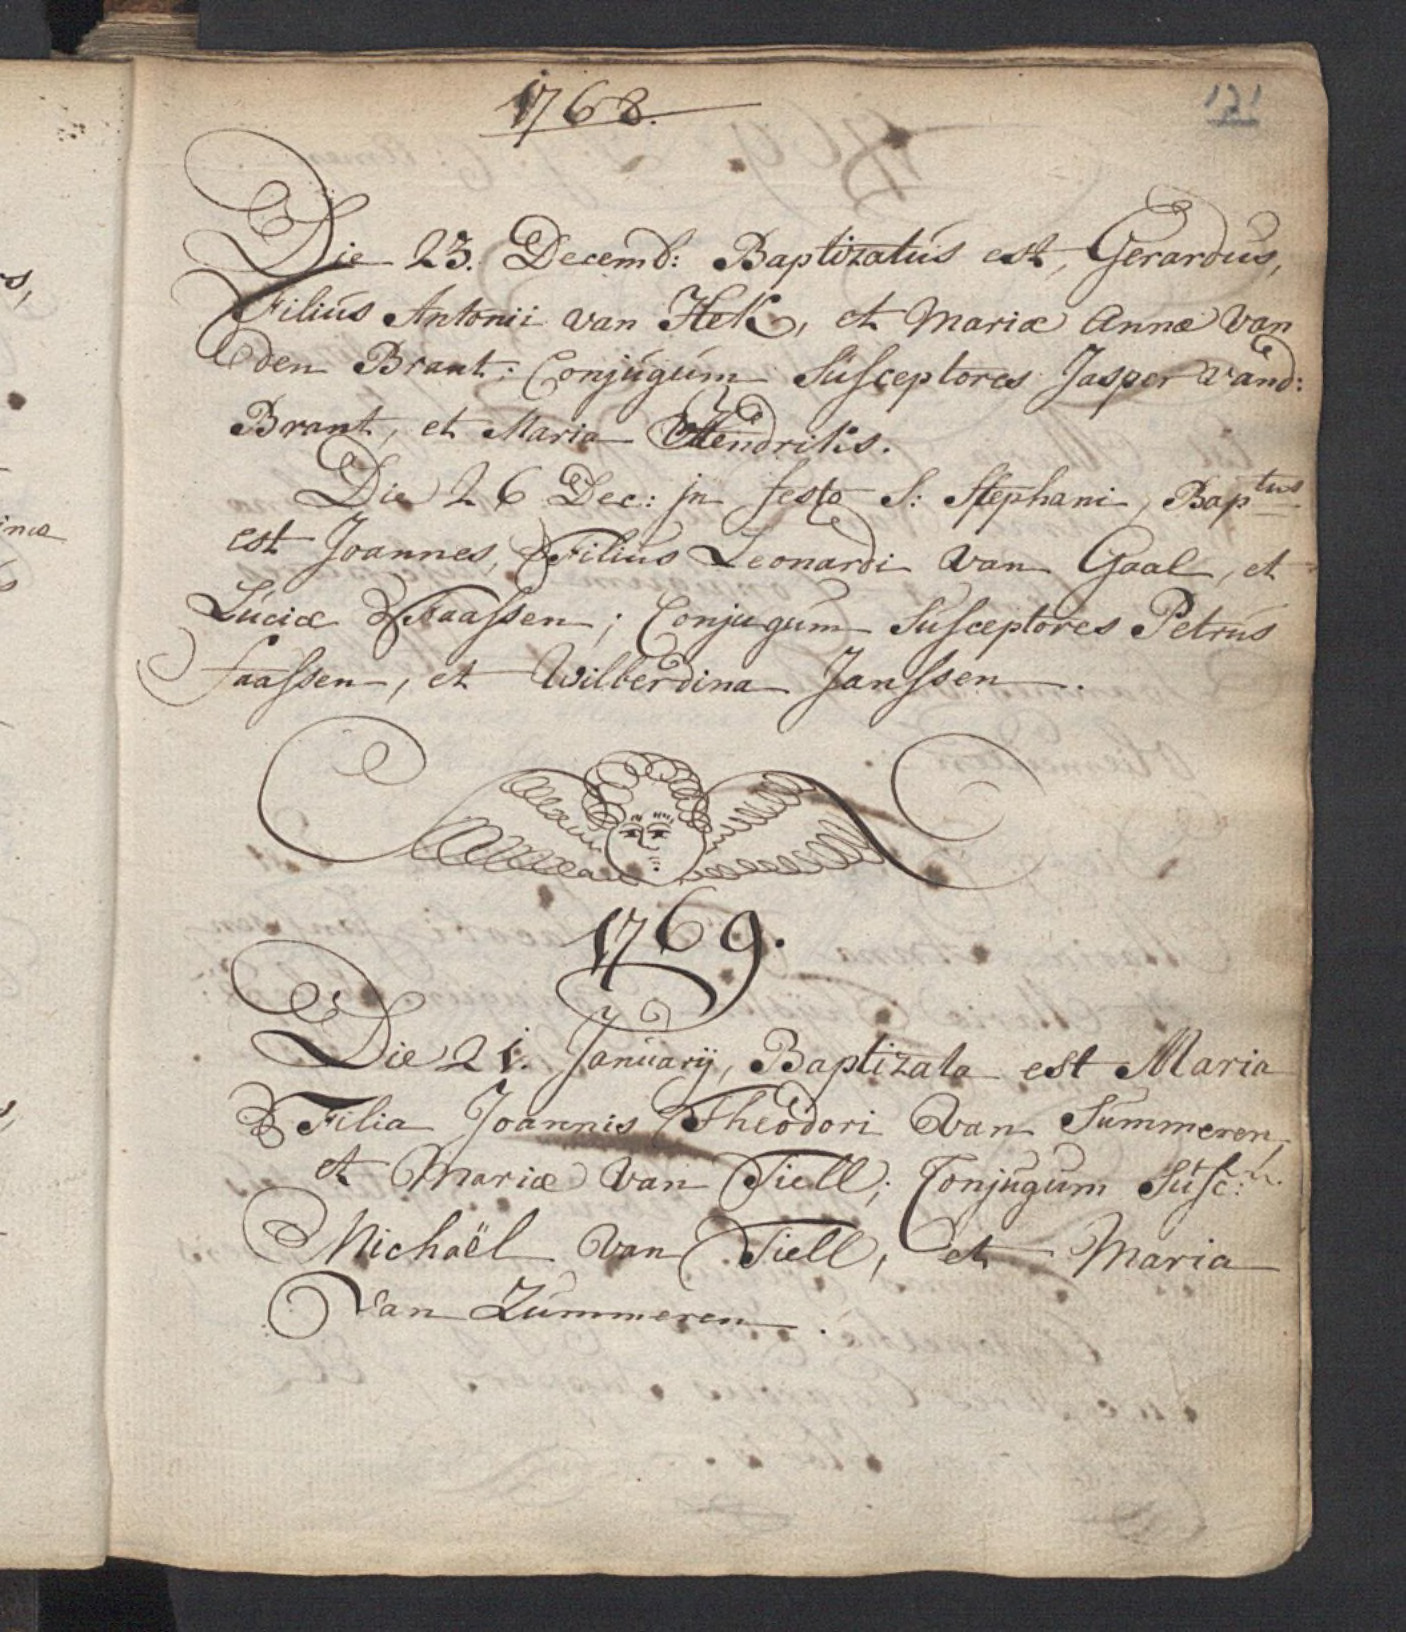 1768.
121
Die 23. Decemb: Baptizatus est, Gerardus,
Filius Antonii van Hek, et Mariæ Annæ van
den Brant; Conjugum Susceptores Jasper vand:
Brant, et Maria Hendriks.
Die 26 Dec: jn festo S: Stephani, Baptus
est Joannes, Filius Leonardi van Gaal, et
Luciæ Faassen; Conjugum Susceptores Petrus
faassen, et Wilberdina Janssen.
1769.
Die 21. Januarij, Baptizata est Maria
Filia Joannis Theodori van Summeren,
et Mariæ van Tiell; Conjugum Susc:
Michaël van Tiell, et Maria
van Zummeren.